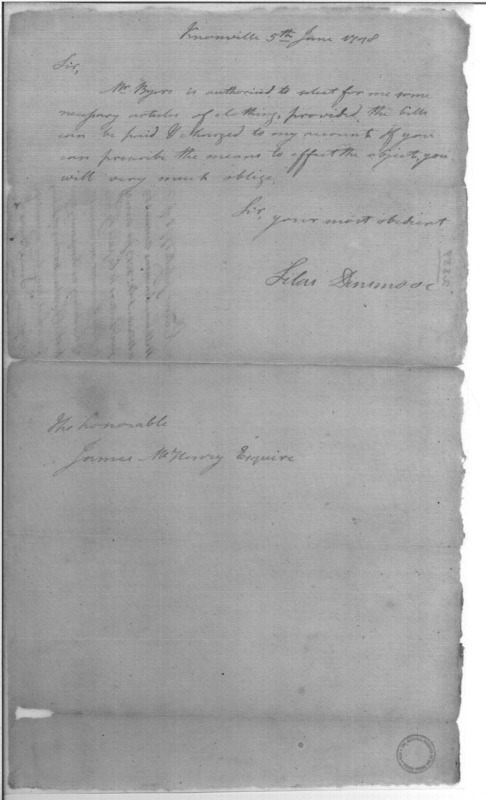 Knoxville 5th June 1798
Sir,
Mr Byers is authorised to select for me some
necessary articles of clothing, provided, the bills
can be paid & charged to my account. If you
can prescribe the means to effect the object, you
will very much oblige
Sir, your most obedient
Silas Dinsmoor
The honorable
James McHenry Esquire